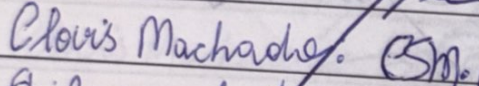 Clovis Machado.